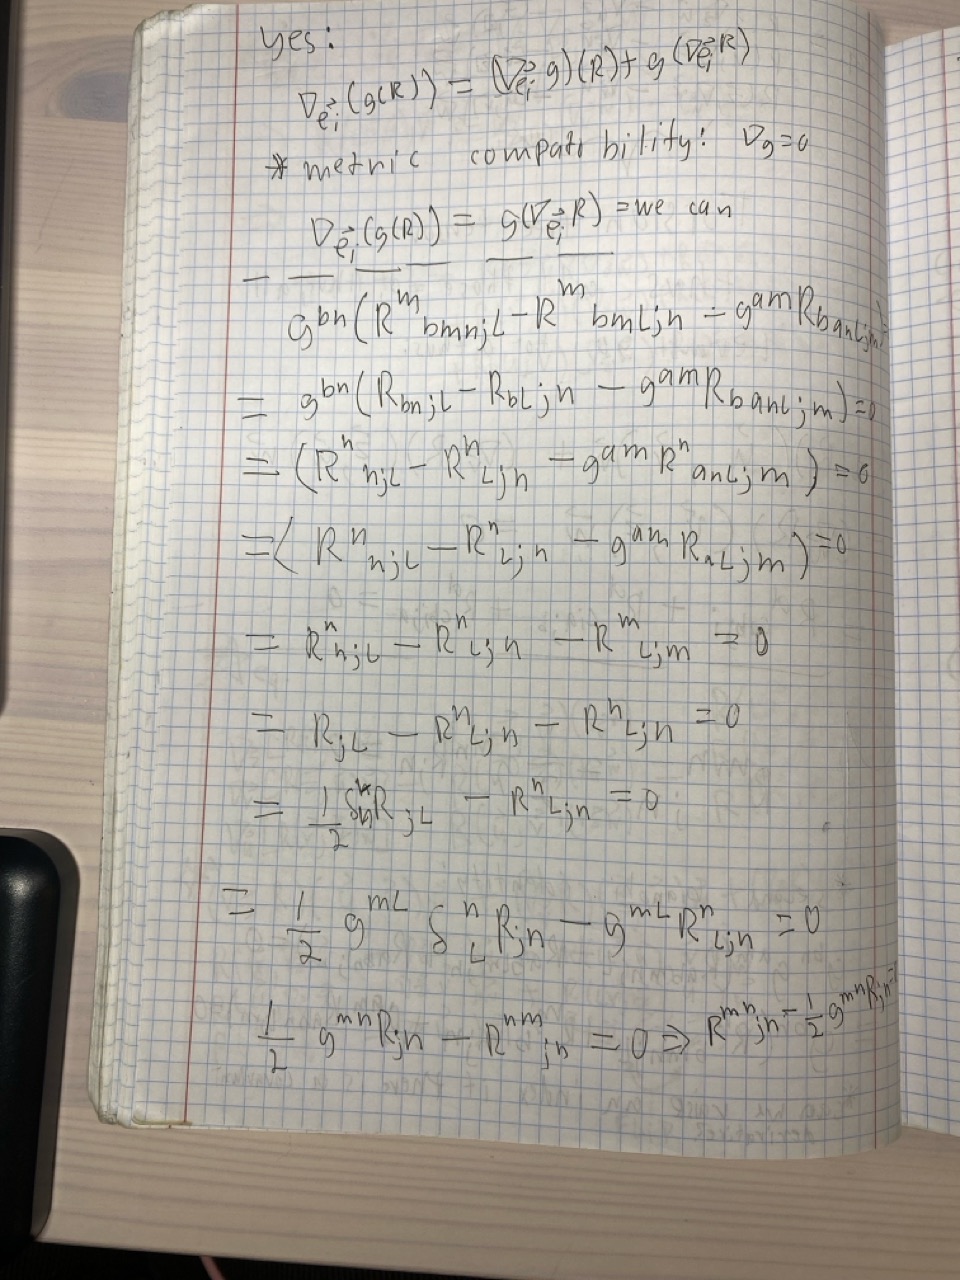 yes:
∇_{e⃗_i}(g(R)) = (∇_{e⃗_i} g)(R) + g(∇_{e⃗_i} R)
* metric compatibility: ∇g=0
∇_{e⃗_i}(g(R)) = g(∇_{e⃗_i} R) = we can
g^{bn}(R^m_{bmn;L} - R^m_{bmL;n} - g^{am}R_{banL;m})
= g^{bn}(R_{bn;L} - R_{bL;n} - g^{am}R_{banL;m}) = 0
= (R^n_{n;L} - R^n_{L;n} - g^{am}R^n_{anL;m}) = 0
= (R^n_{n;L} - R^n_{L;n} - g^{am}R_{aL;m}) = 0
= R^n_{n;L} - R^n_{L;n} - R^m_{L;m} = 0
= R_{;L} - R^n_{L;n} - R^n_{L;n} = 0
= \frac{1}{2} R_{;L} - R^n_{L;n} = 0
= \frac{1}{2} g^{mL} δ^n_L R_{;n} - g^{mL} R^n_{L;n} = 0
\frac{1}{2} g^{mn} R_{;n} - R^{nm}_{;n} = 0 ⇒ R^{mn}_{;n} - \frac{1}{2} g^{mn} R_{;n} =